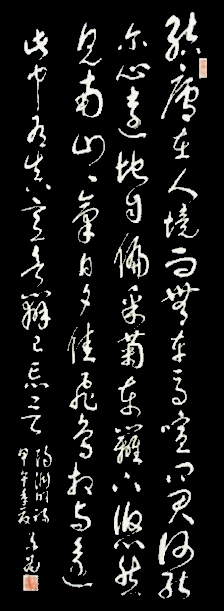 結廬在人境而無車馬喧問君何能
尔心遠地自偏采菊東籬下悠然
見南山〻氣日夕佳飛鳥相与還
此中有真意欲辨已忘言
陶淵明詩
甲午季夏